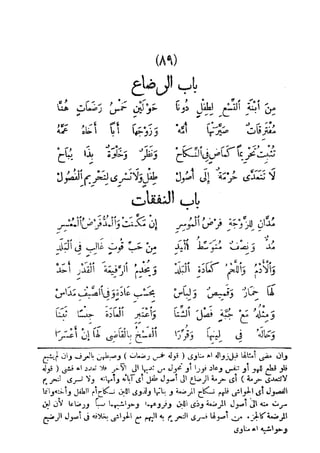 (٨٩)
باب الرضاع
مِنِ ابْنَةِ التِّسْعِ لِطِفْلٍ دُونَا حَوْلَيْنِ خَمْسُ رَضَعَاتٍ هُنَّا
مُفْتَرِقَاتٌ صَيَّرَتْهَا أُمَّهُ وَزَوْجَهَا أَبًا أَخَاهُ عَمَّهُ
تُثْبِتُ تَحْرِيمًا كَمَاضٍ فِي النِّكَاحْ وَنَظَرٌ وَخَلْوَةٌ بِذَا يُبَاحْ
لَا تَتَعَدَّى حُرْمَةٌ إِلَى أُصُولْ طِفْلٍ وَلَا تَسْرِى لِتَحْرِيمِ الْفُصُولْ
باب النفقات
مُدَّانِ لِلزَّوْجَةِ فَرْضُ الْمُوسِرِ إِنْ مَكَّنَتْ وَالْمُدُّ فَرْضُ الْمُعْسِرِ
مُدٌّ وَنِصْفٌ مُتَوَسِّطُ الْيَدِ مِنْ حَبِّ قُوتٍ غَالِبٍ فِي الْبَلَدِ
وَالْأُدْمُ وَاللَّحْمُ كَعَادَةِ الْبَلَدْ وَيُخْدِمُ الرَّفِيعَةَ الْقَدْرِ أَحَدْ
لَهَا خِمَارٌ وَقَمِيصٌ وَلِبَاسْ بِحَسَبِ عَادَةٍ وَفِي الصَّيْفِ مَدَاسْ
وَمِثْلُهُ مَعْ جُبَّةٍ فَصْلَ الشِّتَا وَاعْتَبِرِ الْعَادَةَ جِنْسًا ثَبَتَا
وَحَالَهُ فِي لِينِهَا وَقَرِّرَا الْفَسْخَ بِالْقَاضِى لَهَا إِنْ أَعْسَرَا
وان مضى أمثالها قبل زواله اه مناوى ( قوله خمس رضعات ) وضبطهن بالعرف وان لم يشبع
فلو قطع للهو أو تنفس وعاد فورا أو تحول من ثديها الى الآخر فلا تعدد اه فشنى ( قوله
لاتتعدى حرمة ) أى حرمة الرضاع الى أصول طفل أى آبائه وأمهاته ولا تسرى لتحريم
الفصول أى الحواشى فلهم نكاح المرضعة و بناتها ولذوى اللبن نكاح أم الطفل وأخته وانما
سرت منه الى أصول المرضعة وذى اللبن وفروعهما وحواشيهما نسبا ورضاعا لأن لبن
المرضعة كالجزء من أصولها فسرى التحريم به اليهم مع الحواشى بخلافه فى أصول الرضيع
وحواشيه اه مناوى